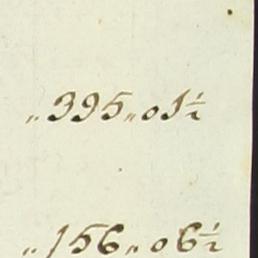 „395„01½
„156„06½